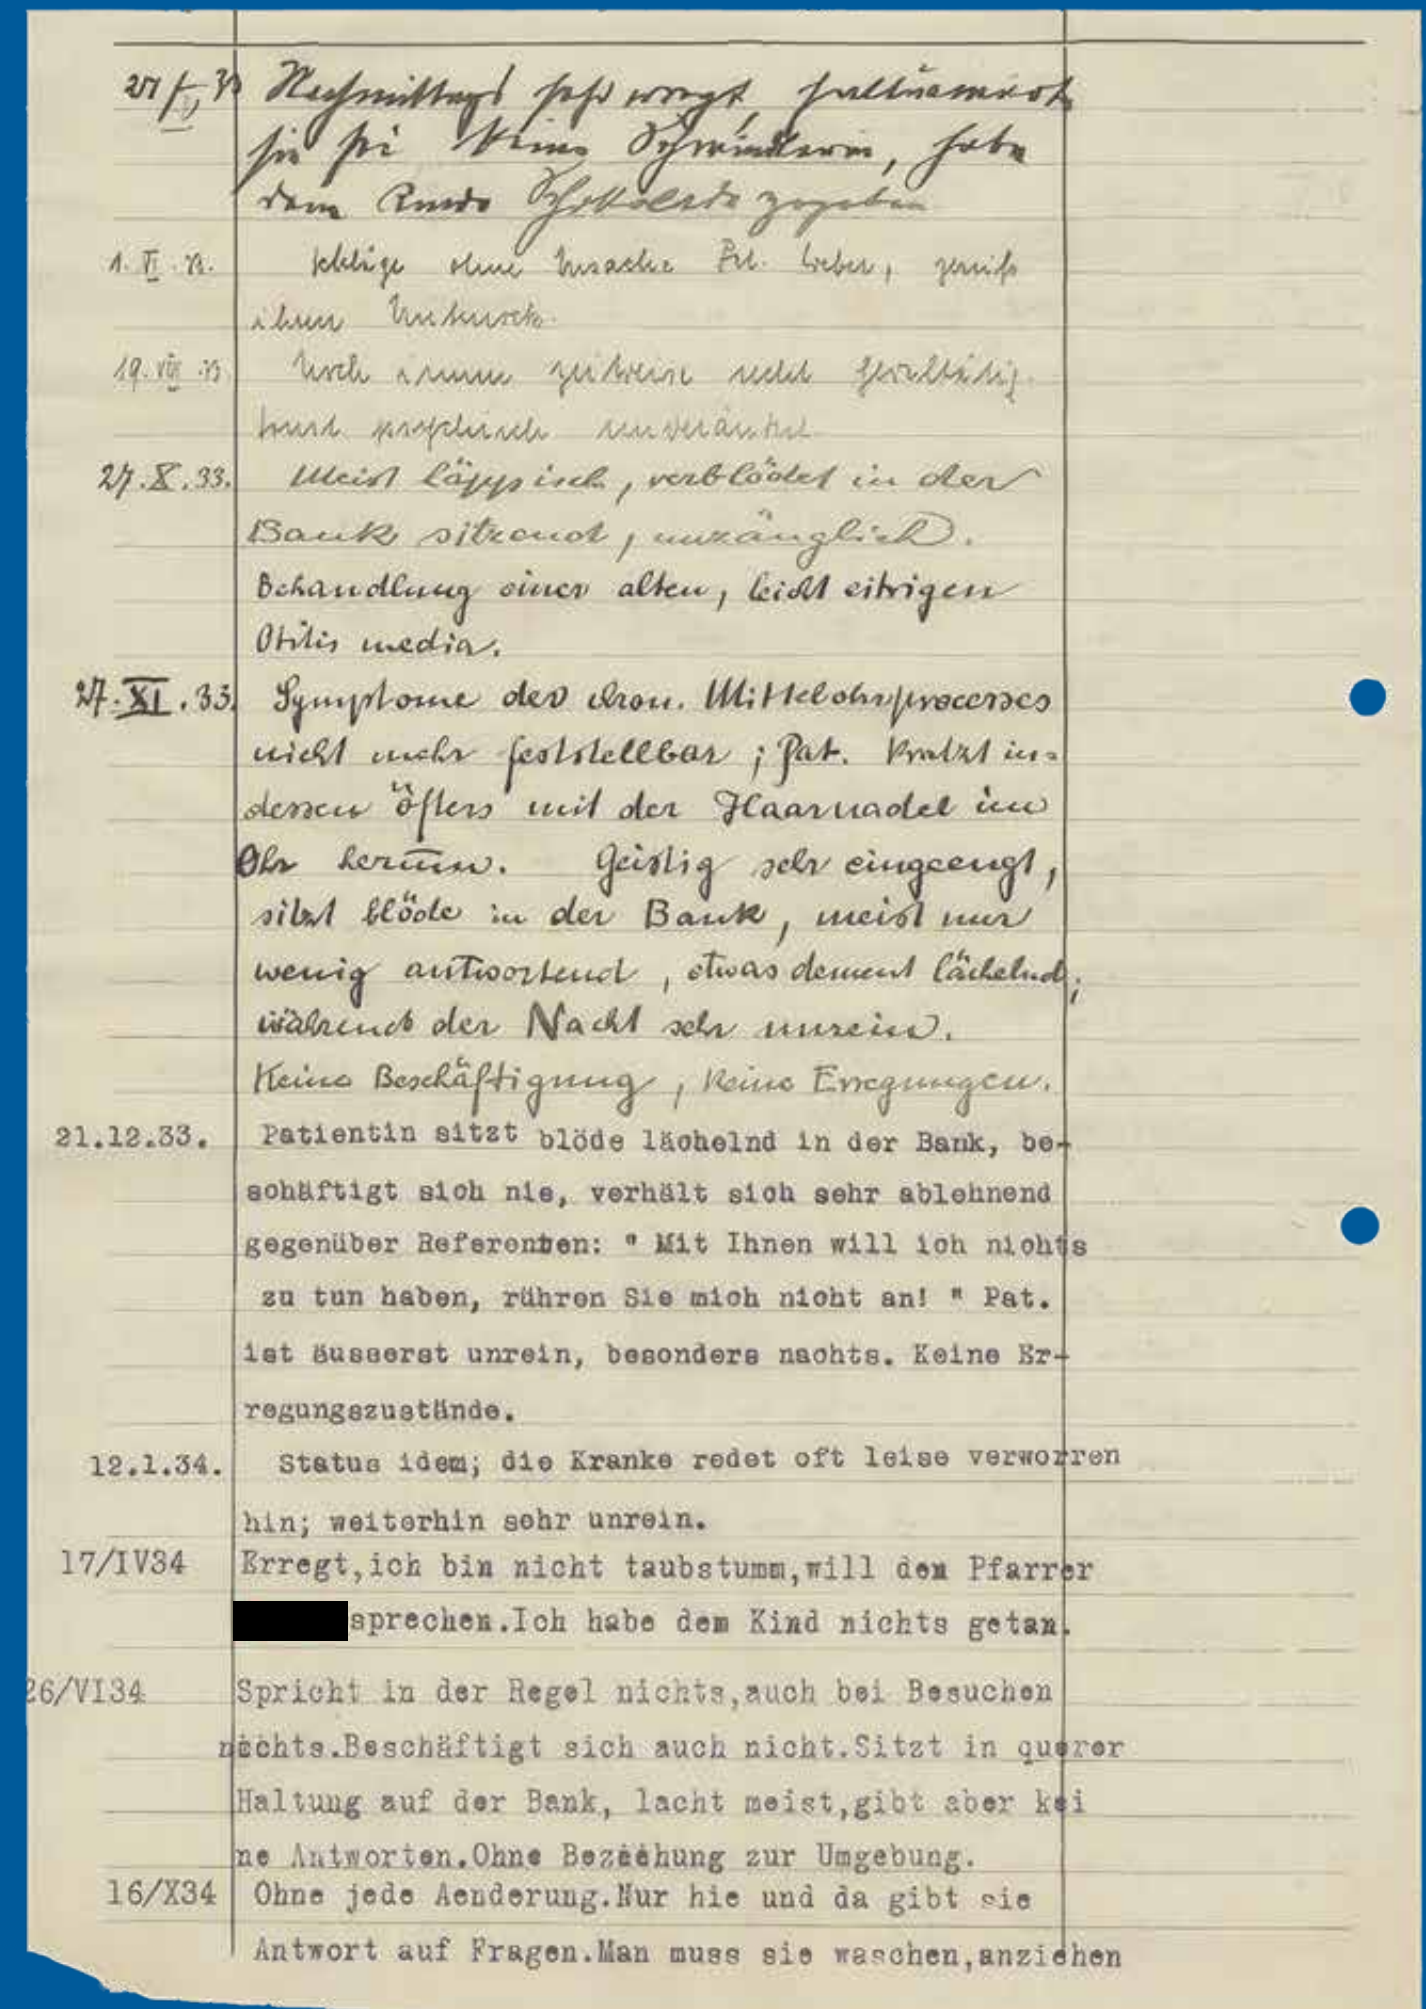 Nachmittags sehr erregt, halluciniert
sie sei keine Schwindlerin, habe
dem Kinde Schokolade gegeben
1. VI. 33. schlägt ohne Ursache Frl. Weber, zerriss
ihren Unterrock.
19. VIII. 33. Noch immer zeitweise recht gewalttätig.
Sonst psychisch unverändert
27.X.33. Meist läppisch, verblödet in der
Bank sitzend, unzugänglich.
Behandlung einer alten, leicht eitrigen
Otitis media.
27.XI.33. Symptome des chron. Mittelohrprocesses
nicht mehr feststellbar; Pat. kratzt in-
dessen öfters mit der Haarnadel im
Ohr herum. Geistig sehr eingeengt,
sitzt blöde in der Bank, meist nur
wenig antwortend, etwas dement lächelnd;
während der Nacht sehr unrein.
Keine Beschäftigung, keine Erregungen.
21.12.33. Patientin sitzt blöde lächelnd in der Bank, be-
schäftigt sich nie, verhält sich sehr ablehnend
gegenüber Referenten: " Mit Ihnen will ich nichts
zu tun haben, rühren Sie mich nicht an! " Pat.
ist äusserst unrein, besonders nachts. Keine Er-
regungszustände.
12.1.34. Status idem; die Kranke redet oft leise verworren
hin; weiterhin sehr unrein.
17/IV34 Erregt,ich bin nicht taubstumm,will den Pfarrer
sprechen.Ich habe dem Kind nichts getan.
26/VI34 Spricht in der Regel nichts,auch bei Besuchen
nichts.Beschäftigt sich auch nicht.Sitzt in querer
Haltung auf der Bank, lacht meist,gibt aber kei
ne Antworten.Ohne Beziehung zur Umgebung.
16/X34 Ohne jede Aenderung.Nur hie und da gibt sie
Antwort auf Fragen.Man muss sie waschen,anziehen